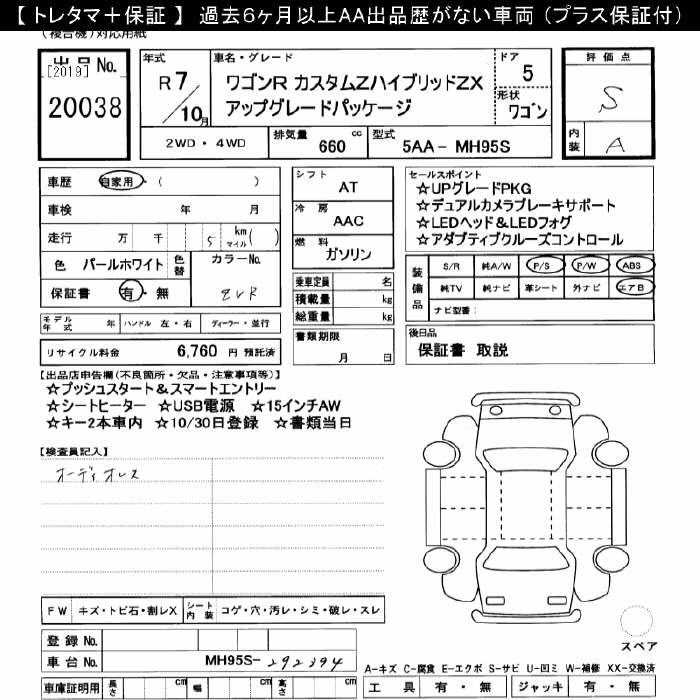 【 トレタマ＋保証 】 過去6ヶ月以上AA出品歴がない車両 (プラス保証付)
(複合機)対応用紙
出品 No.
[2019]
20038
年式
R 7/10月
車名・グレード
ワゴンR カスタムZハイブリッドZX
アップグレードパッケージ
ドア
5
形状
ワゴン
評価点
S
内装
A
2WD・4WD
排気量
660 cc
型式
5AA- MH95S
車歴 自家用・( )
車検 年 月
走行 万 千 5 km マイル ( )
色 パールホワイト 色替 カラーNo.
保証書 有・無 ZVR
シフト
AT
冷房
AAC
燃料
ガソリン
乗車定員 名
積載量 kg
総重量 kg
セールスポイント
☆UPグレードPKG
☆デュアルカメラブレーキサポート
☆LEDヘッド&LEDフォグ
☆アダプティブクルーズコントロール
装備品
S/R 純A/W P/S P/W ABS
純TV 純ナビ 革シート 外ナビ エアB
ナビ型番:
モデル年式 年 ハンドル 左・右 ディーラー・並行
リサイクル料金 6,760 円 預託済
書類期限
月 日
後日品
保証書 取説
【出品店申告欄(不良箇所・欠品・注意事項等)】
☆プッシュスタート&スマートエントリー
☆シートヒーター ☆USB電源 ☆15インチAW
☆キー2本車内 ☆10/30日登録 ☆書類当日
【検査員記入】
オーディオレス
FW キズ・トビ石・割レX シート内装 コゲ・穴・汚レ・シミ・破レ・スレ
登録 No.
車台 No. MH95S- 292394
車庫証明用 長さ cm 幅 cm 高さ cm
スペア
A-キズ C-腐食 E-エクボ S-サビ U-凹ミ W-補修 XX-交換済
工具 有・無 ジャッキ 有・無